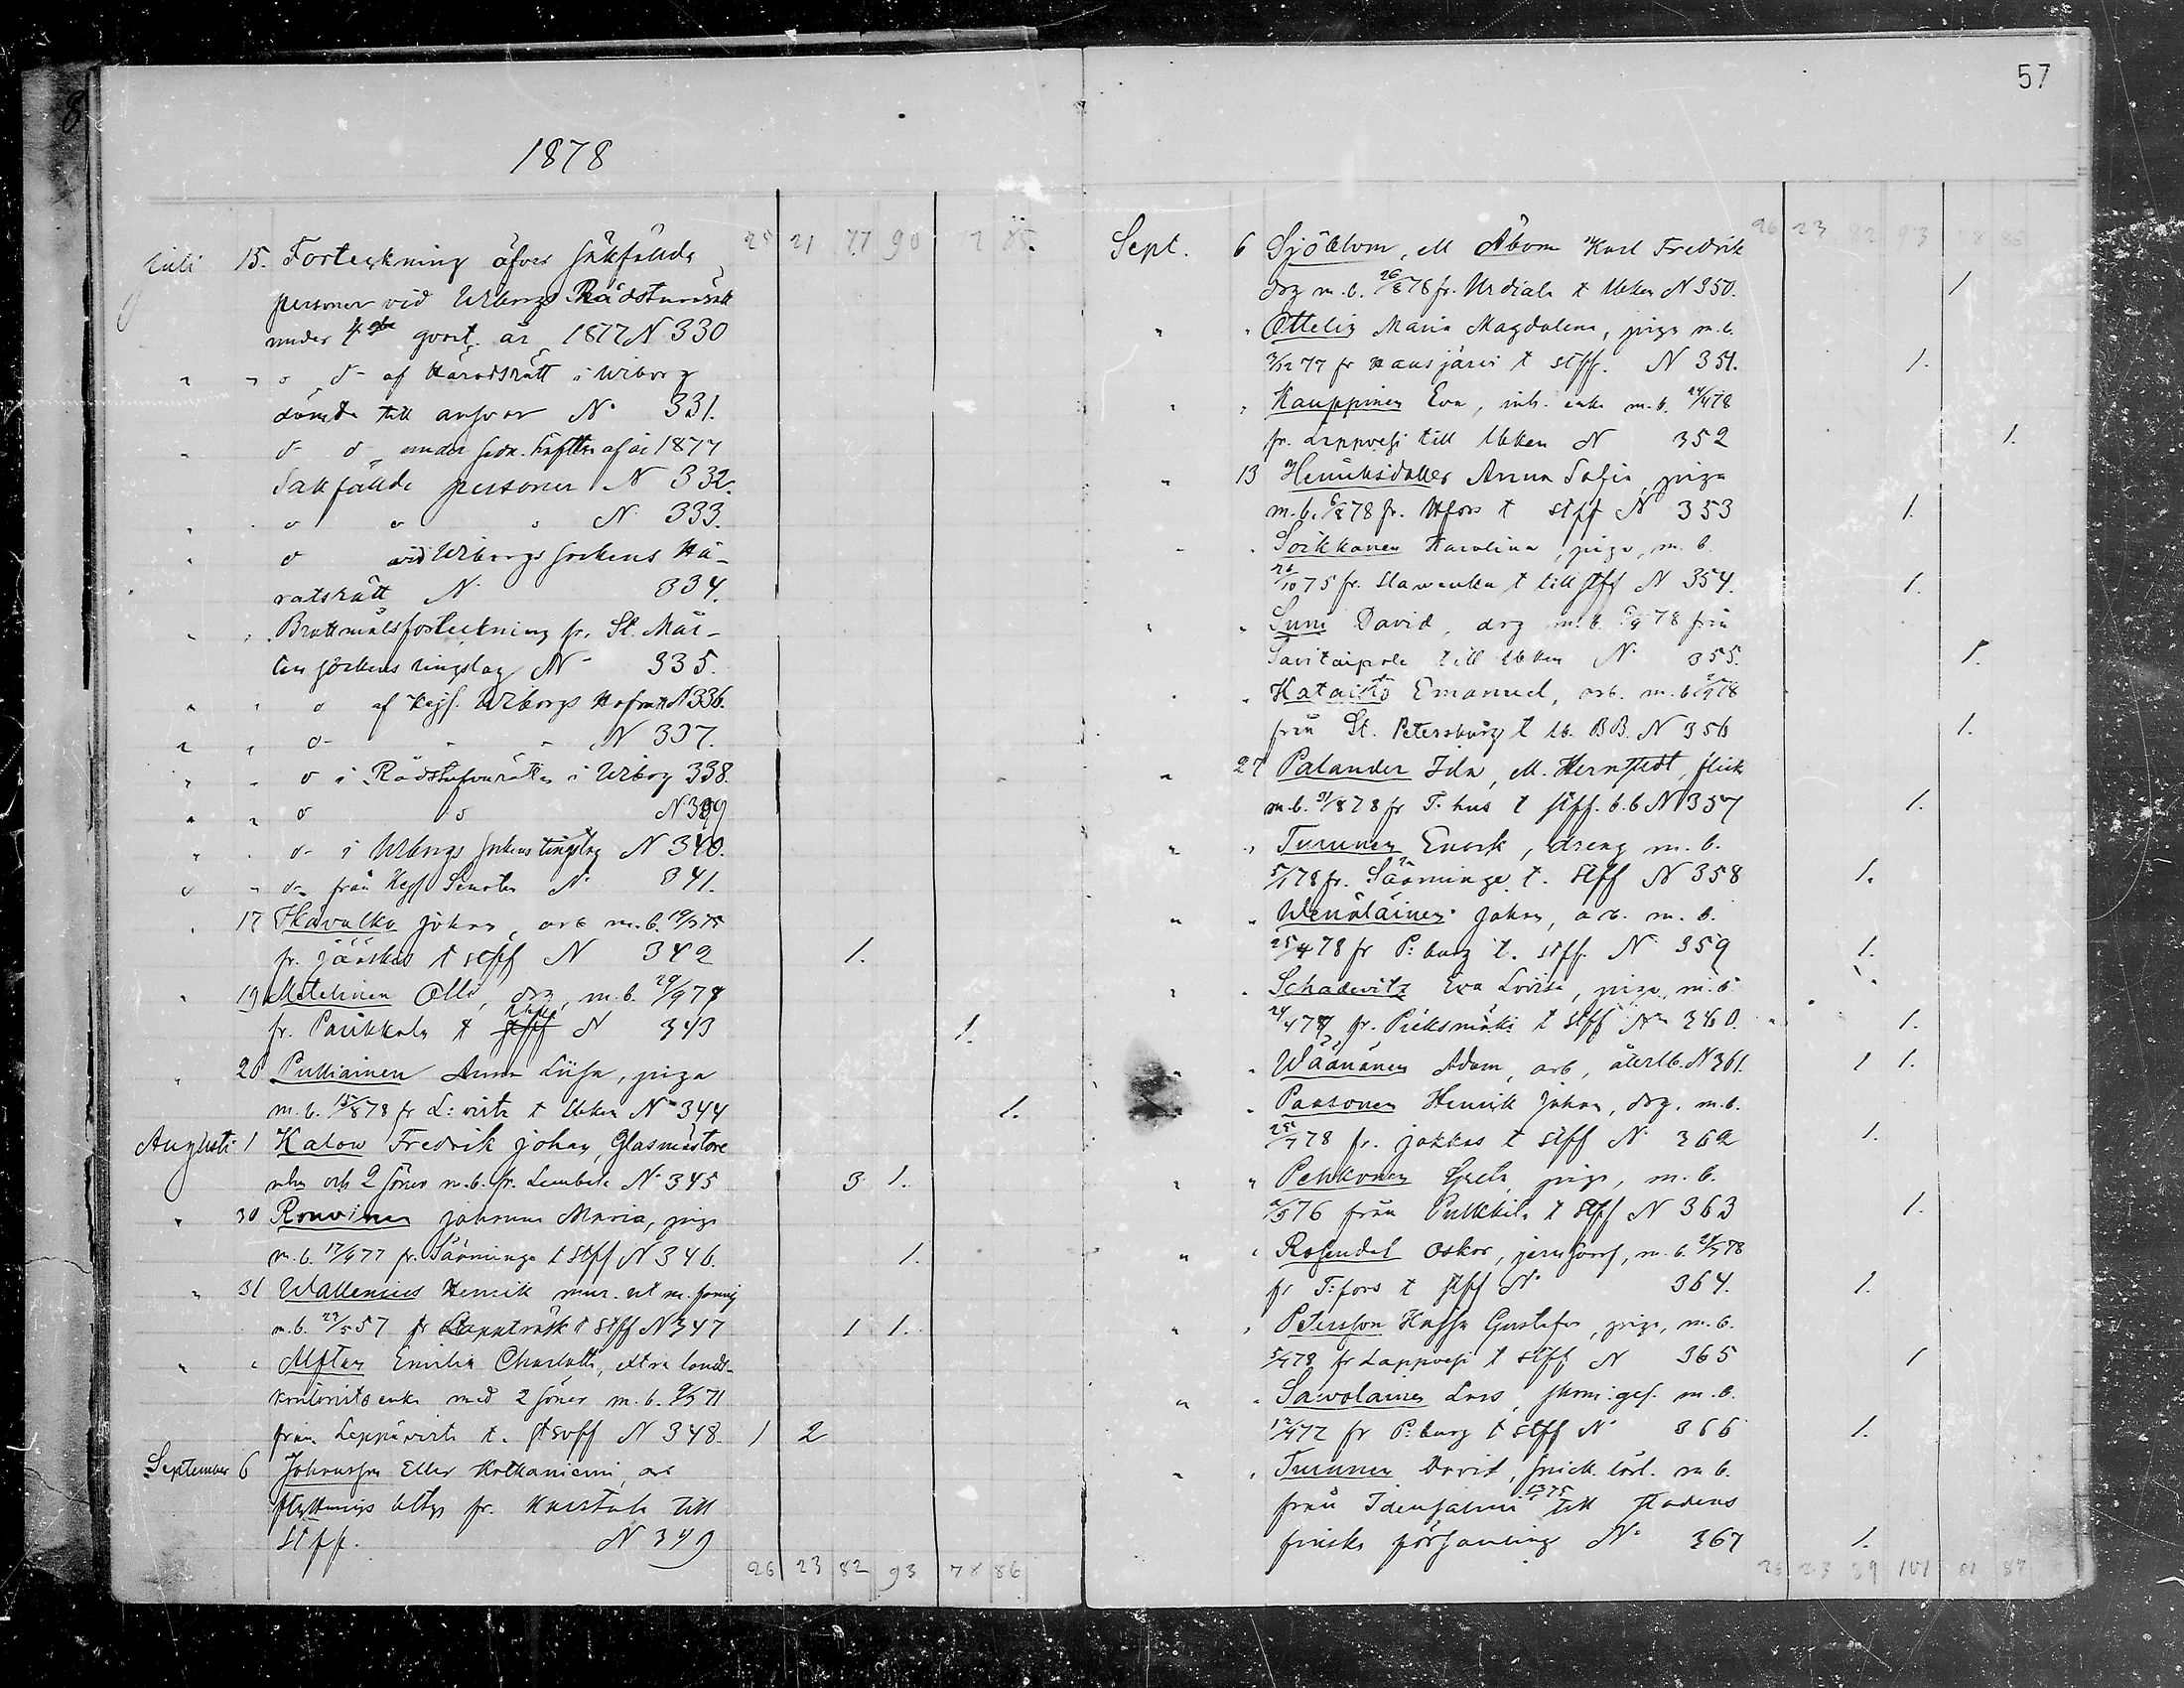 57
1878
25 21 77 90 85
Juli 15. Forteckning öfver sakfällde
personer vid Wiborgs Rådsturätt
under 4de qvart. år 1877 N 330
" " d- af Häradsrätt i Wiborg
dömde till ansvar N° 331.
" d- d- under sedn. hälften af år 1877
Sakfällde personer N 332.
" " d d d N 333.
" d vid Wiborgs sockens Hä-
ratsrätt N 334.
" " Brottmålsforteckning fr. St. Mår-
tens sockens tingslag N° 335.
" " d af Kejs. Wiborgs Hofrätt N 336.
" " d- " " N 337.
" " d i Rådstufvurätten i Wiborg 338.
" " d d N 339
" " d- i Wiborgs sockens tingslag N 340.
" " d- från Kejs Senaten N° 341.
" 17 Skavalka Johan, arb m.b. 19/3 75
fr. Jääskis t stff N 342 1.
" 19 Matelinen Olli, drg, m.b. 29/9 78
fr. Parikkala t stff N 343 1.
" 20 Pulliainen Anna Liisa, piga
m.b. 15/8 78 fr L:virta t Ubken N° 344 1.
Augusti 1 Kalow Fredrik Johan, Glasmästare
och 2 söner m.b. fr. Lembala N° 345 3 1.
" 30 Rouvinen Johanna Maria, piga
m.b. 17/9 77 fr. Säominge t stff N 346. 1.
" 31 Wallenius Henrik mur. ut m. familj
m.b. 27/5 57 fr Lappträsk t stff N 347 1 1.
" " Alftan Emilia Charlotta, extra lands-
kontorists enka med 2 söner m.b. 9/3 71
från Leppävirta t. stsvff N 348. 1 2
September 6 Johansson Eller Kotkaniemi, arb
flyttnings btg fr. Karstula till
Stff. N 349
26 23 82 93 78 86
26 23 82 93 78 86
Sept. 6 Sjöblom, ell Åbom Karl Fredrik
drg m.b. 26/8 78 fr. Urdiala t Ubken N 350. 1
" " Ottelin Maria Magdalena, piga m.b.
3/12 77 fr Hausjärvi t stff. N 351. 1.
" " Kauppinen Eva, inh. enka m.b. 24/4 78
fr. Lappvesi till Ubken N 352 1.
" 13 Henriksdotter Anna Sofia, piga
m.b. 6/8 78 fr. Hfors t stff N 353 1.
" " Soikkanen Karolina, piga, m.b.
26/10 75 fr. Slavenka t till stff N 354. 1.
" " Suni David, drg m.b. 78 från
Savitaipale till Ubken N° 355. 1.
" " Kataisto Emanuel, arb. m.b. 78
från St. Petersburg t Ub. BB. N 356 1.
" 27 Palander Ida, ell. Hernstedt, flick
m.b. 31/8 78 fr T.hus t stff. b.b N 357 1.
" " Turunen Enock, dreng m.b.
5/1 78 fr. Säominge t. stff N 358 1.
" " Wenäläinen Johan, arb. m.b.
25/4 78 fr P:burg t. stff. N 359 1.
" " Schadevitz Eva Lovisa, piga, m.b
24/4 78, fr. Pieksmäki t stff N° 360. 1.
" " Wäänänen Adam, arb, återlb. N 361. 1 1.
" " Paasonen Henrik Johan, drg. m.b.
25/7 78 fr. Jokkas t stff N° 362 1.
" " Pehkonen Greta, piga, m.b.
76 från Pulkkila t stff N 363 1.
" " Rosendal Oskar, m.b. 24/7 78
fr T:fors t stff N° 364. 1.
" " Petersson Hassa Gustafva, piga, m.b.
5/4 78 fr Lappvesi t stff N 365 1
" " Sawolainen Lars, skom. ges. m.b.
12/4 72 fr P:burg t stff N° 366 1.
" " Turunen David, snick. lärl. m.b.
från Idensalmi 75 till stadens
finska församling N° 367 1.
26 23 89 101 81 87